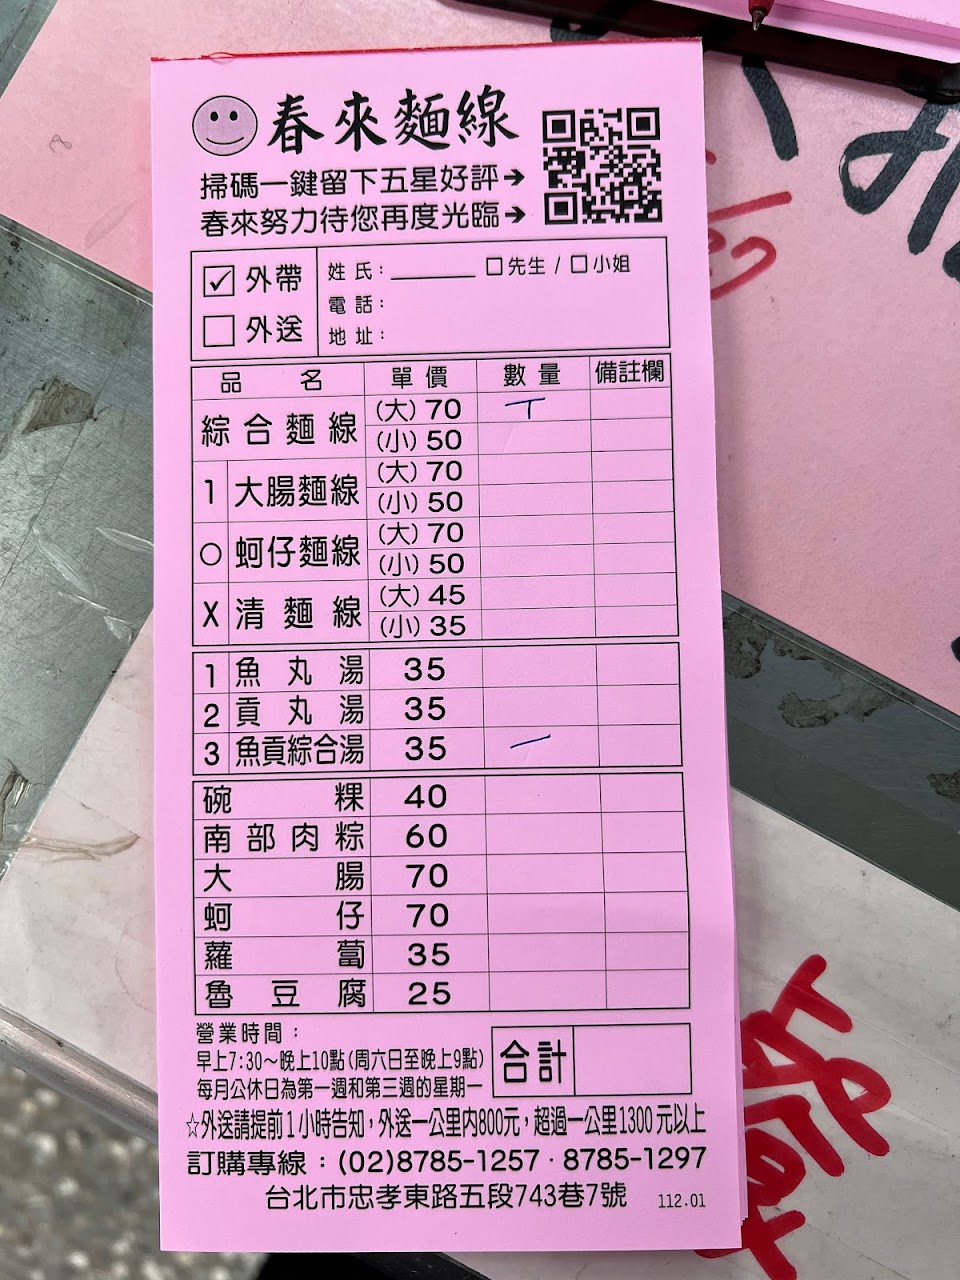 春來麵線
掃碼一鍵留下五星好評→
春來努力待您再度光臨→
☑ 外帶
□ 外送
姓氏：________ □先生 / □小姐
電話：
地址：
品名 單價 數量 備註欄
綜合麵線 (大) 70 丅
(小) 50
1 大腸麵線 (大) 70
(小) 50
○ 蚵仔麵線 (大) 70
(小) 50
X 清麵線 (大) 45
(小) 35
1 魚丸湯 35
2 貢丸湯 35
3 魚貢綜合湯 35 一
碗粿 40
南部肉粽 60
大腸 70
蚵仔 70
蘿蔔 35
魯豆腐 25
營業時間：
早上7:30～晚上10點(周六日至晚上9點)
每月公休日為第一週和第三週的星期一
合計
☆外送請提前1小時告知，外送一公里內800元，超過一公里1300元以上
訂購專線：(02)8785-1257・8785-1297
台北市忠孝東路五段743巷7號 112.01